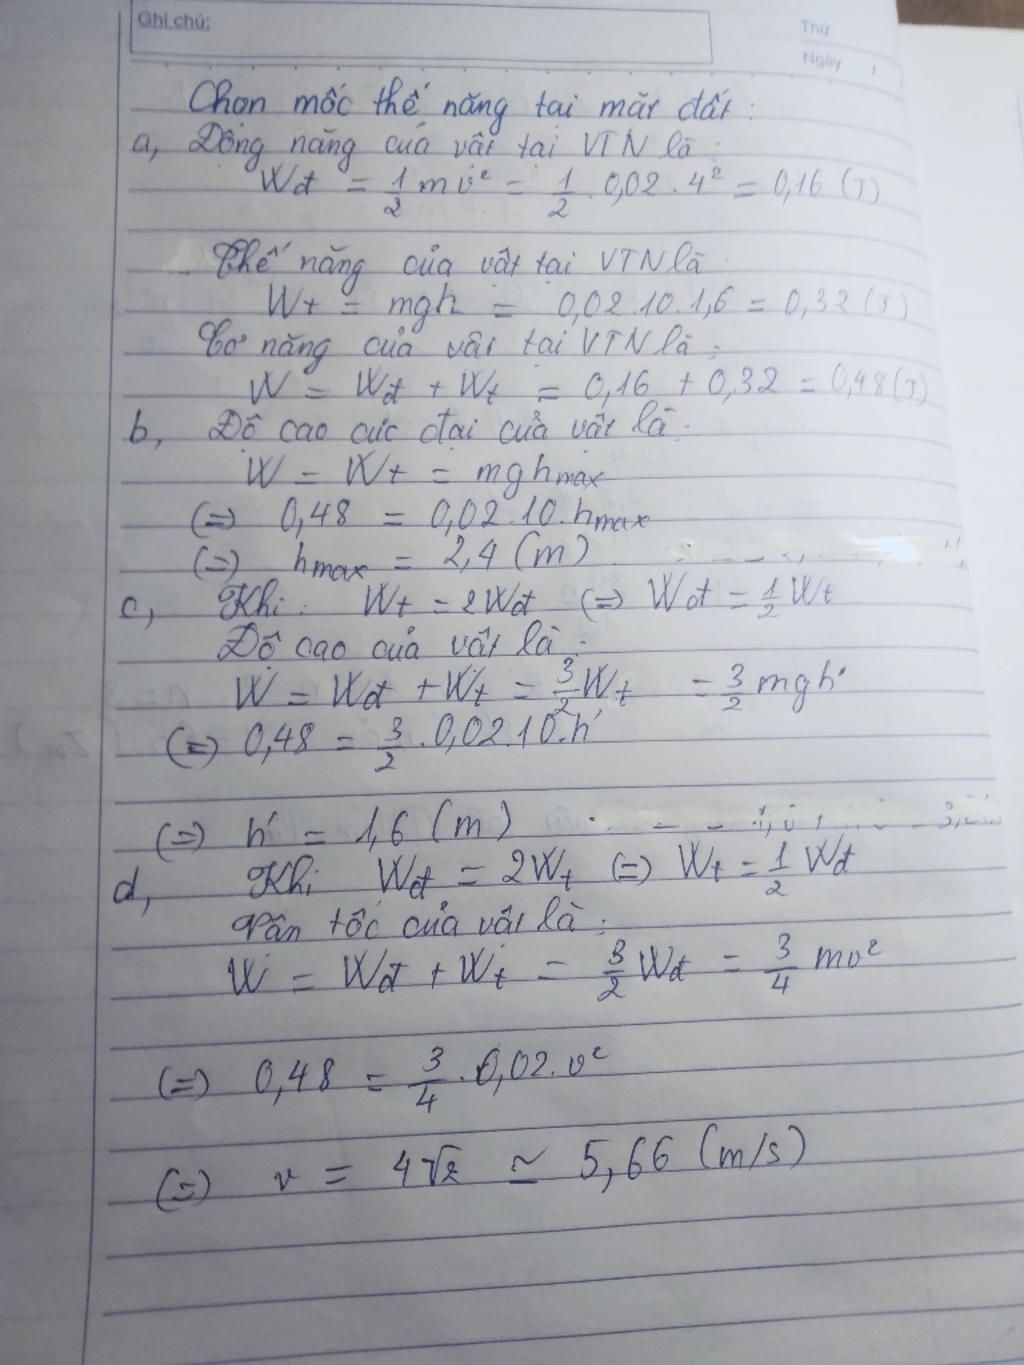 Ghi chú:
Thứ
Ngày /
Chọn mốc thế năng tại mặt đất :
a, Động năng của vật tại VTN là :
Wđ = 1/2 mv² = 1/2 . 0,02 . 4² = 0,16 (J)
Thế năng của vật tại VTN là
Wt = mgh = 0,02.10.1,6 = 0,32 (J)
Cơ năng của vật tại VTN là :
W = Wđ + Wt = 0,16 + 0,32 = 0,48 (J)
b, Độ cao cực đại của vật là :
W = Wt = mghmax
(=) 0,48 = 0,02.10.hmax
(=) hmax = 2,4 (m)
c, Khi : Wt = 2Wđ (=) Wđ = 1/2 Wt
Độ cao của vật là :
W = Wđ + Wt = 3/2 Wt = 3/2 mgh'
(=) 0,48 = 3/2 . 0,02.10.h'
(=) h' = 1,6 (m)
d, Khi Wđ = 2Wt (=) Wt = 1/2 Wđ
Vận tốc của vật là :
W = Wđ + Wt = 3/2 Wđ = 3/4 mv²
(=) 0,48 = 3/4 . 0,02. v²
(=) v = 4√2 ≃ 5,66 (m/s)